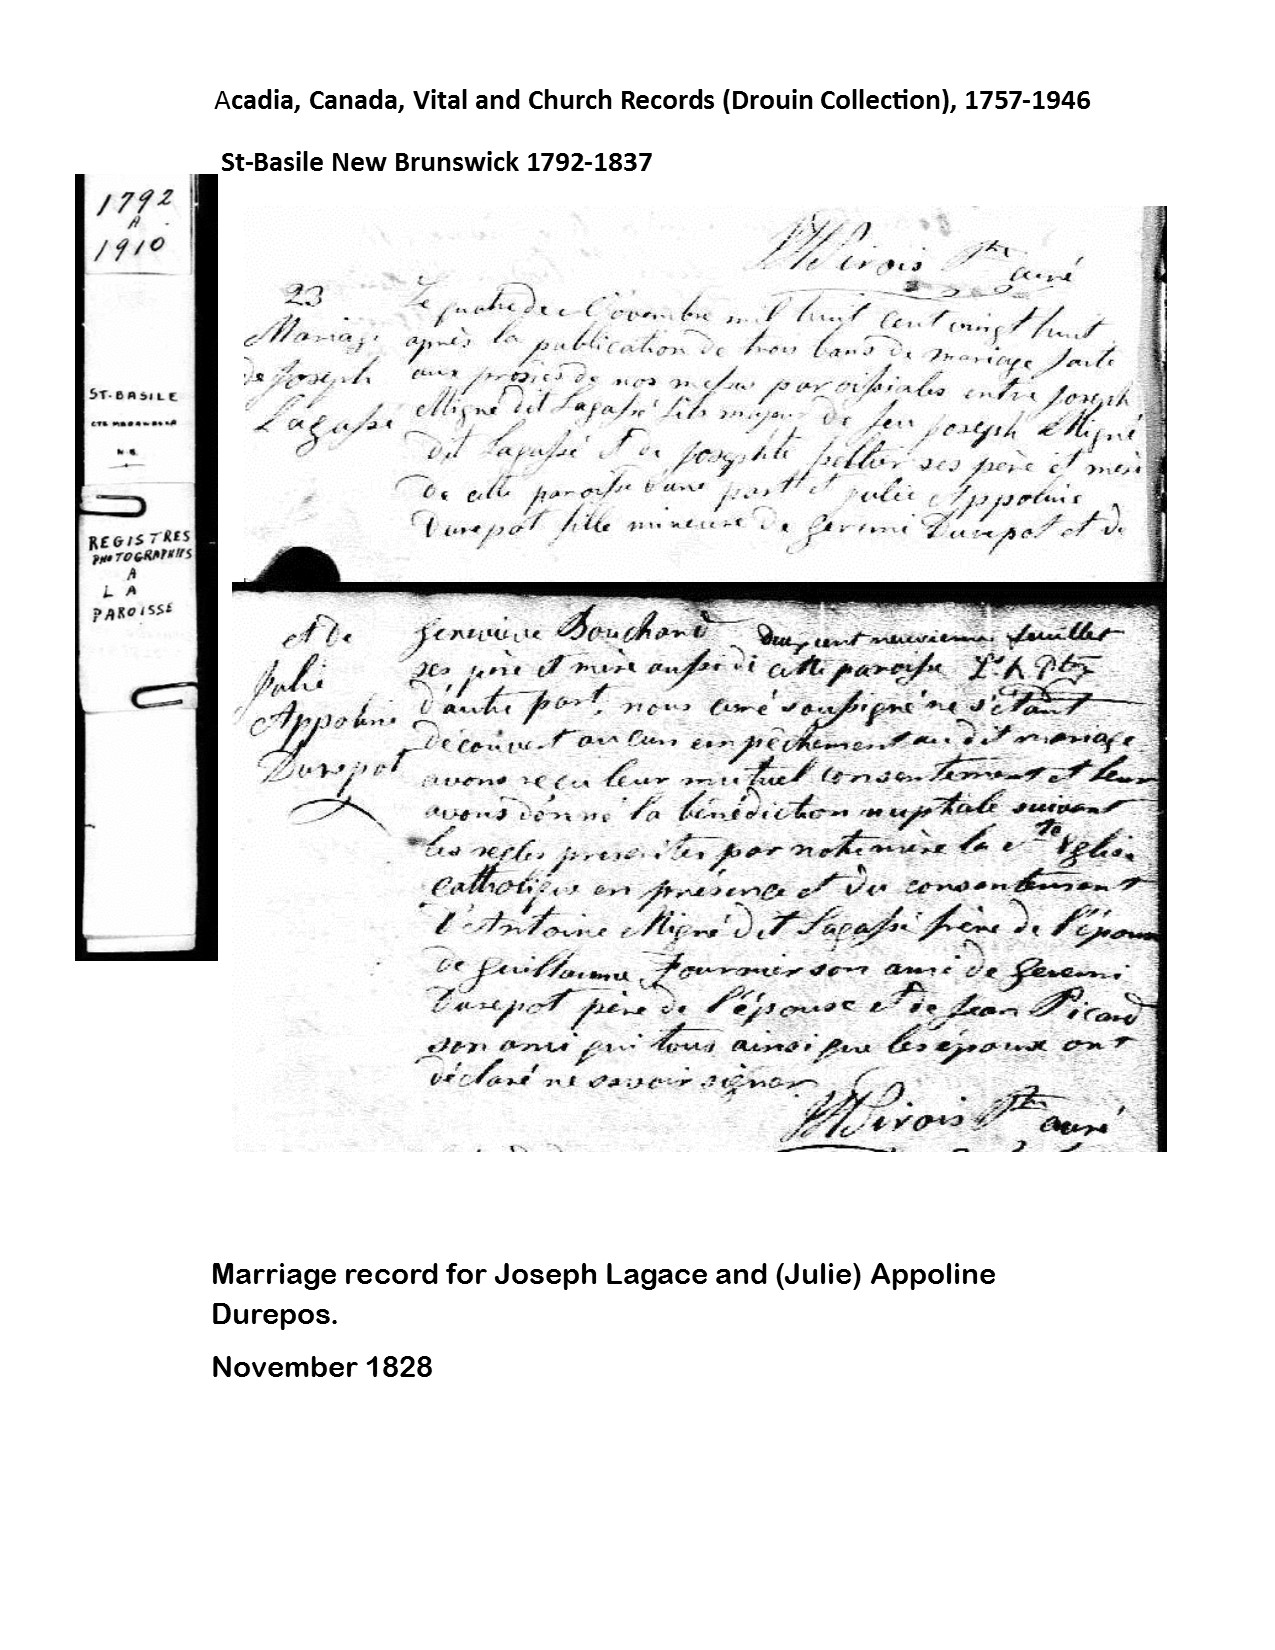 Acadia, Canada, Vital and Church Records (Drouin Collection), 1757-1946
St-Basile New Brunswick 1792-1837
1792
A
1910
ST-BASILE
CTE MADAWASKA
N.B.
REGISTRES
PHOTOGRAPHIÉS
A
L A
PAROISSE
Sirois Ptre curé
23
Mariage
de Joseph
Lagassé
Le quatre de Novembre mil huit cent vingt huit
après la publication de trois bans de mariage faite
aux prones de nos messes paroissiales entre Joseph
Migné dit Lagassé fils majeur de feu Joseph Migné
dit Lagassé et de Josephte Peltier ses père et mère
de cette paroisse d'une part et Julie Appoline
Durepot fille mineure de Geremi Durepot et de
et de
Julie
Appoline
Durepot
Geneviève Bouchard deux cent neuvieme feuillet
ses père et mère aussi de cette paroisse
d'autre part, nous curé soussigné ne s'étant
découvert aucun empêchement au dit mariage
avons reçu leur mutuel consentement et leur
avons donné la bénédiction nuptiale suivant
les regles prescrites par notre mère la Ste Eglise
catholique en présence et du consentement
d'Antoine Migné dit Lagassé frère de l'époux
de Guillaume Fournier son ami de Geremi
Durepot père de l'épouse et de Jean Picard
son ami qui tous ainsi que les époux ont
déclaré ne savoir signer
Sirois Ptre curé
Marriage record for Joseph Lagace and (Julie) Appoline
Durepos.
November 1828